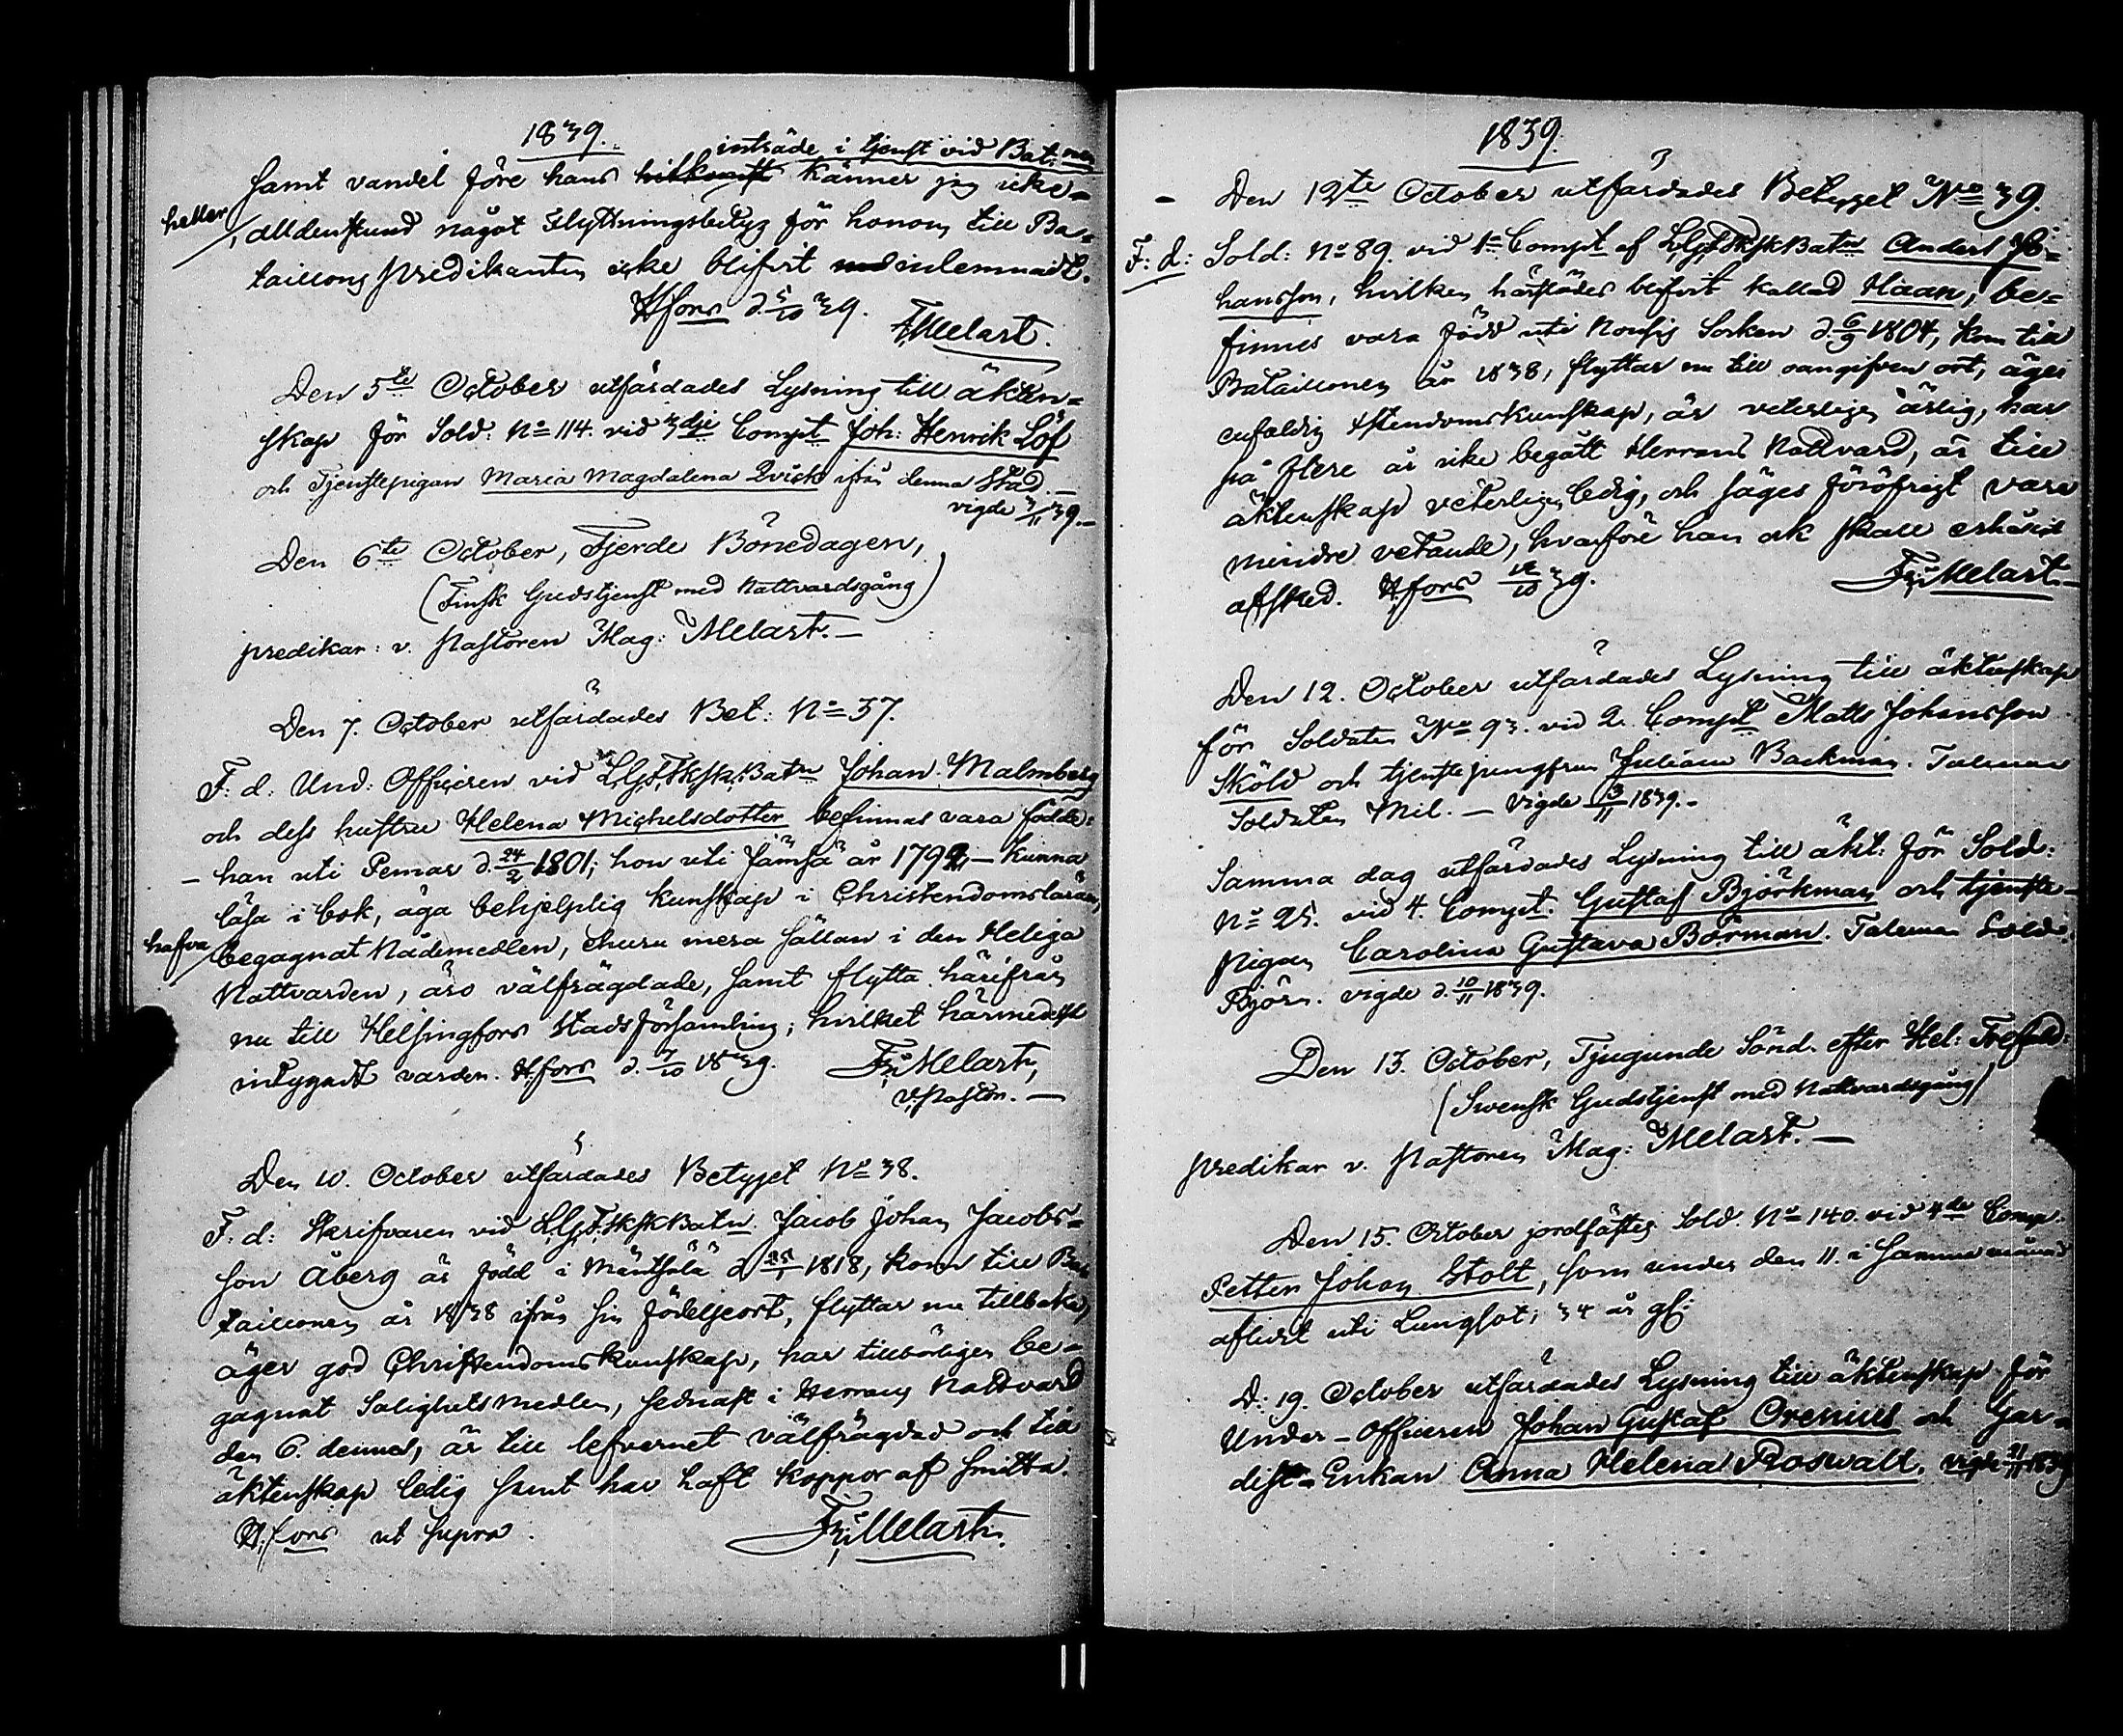 1839.
inträde i tjenst vid Bat:nen
samt vandel före hans hitkomst känner jag icke
heller, alldenstund något Flyttningsbetyg för honom till Ba-
taillons Predikanten icke blifvit inlemnadt.
H:fors d. 5/10 39.
F. Melart.
Den 5te October utfärdades Lysning till äkten-
skap för Sold: No 114. vid 3dje Compt Joh: Henrik Löf
och Tjenstepigan Maria Magdalena Qvick ifrån denna Stad. —
vigde 3/11 39. —
Den 6te October, Fjerde Bönedagen,
(Finsk Gudstjenst med Nattvardsgång)
predikar: v. Pastoren Mag: Melart. —
Den 7. October utfärdades Bet: No 37.
F: d: Und: Officeren vid L.G.F.Sk.Sk.Batn Johan Malmberg
och dess hustru Helena Michelsdotter befinnas vara födde:
— han uti Pemar d. 24/2 1801; hon uti Jämsä år 1792, — kunna
läsa i bok, äga behjelplig kunskap i Christendomsläran,
hafva begagnat Nådemedlen, ehuru mera sällan i den Heliga
Nattvarden, äro välfrägdade, samt flytta härifrån
nu till Helsingfors Stadsförsamling; hvilket härmedelst
intygadt varder. H:fors d. 7/10 1839. Fr: Melart,
v: Pastor. —
Den 10. October utfärdades Betyget No 38.
F: d: Skrifvaren vid L.G.F.Sk.Sk.Batn Jacob Johan Jacobs-
son Åberg är född i Mäntsälä d 25/1 1818, kom till Ba-
taillonen år 1838 ifrån sin födelseort, flyttar nu tillbaka,
äger god Christendomskunskap, har tillbörligen be-
gagnat Salighetsmedlen, sednast i Herrans Nattvard
den 6. dennes, är till lefvernet välfrägdad och till
äktenskap ledig samt har haft koppor af smitta.
H:fors ut supra. Fr: Melart.
1839.
- Den 12te October utfärdades Betyget No 39.
F: d: Sold: No 89. vid 1a Compt af L.G.F.Sk.Sk.Batn Anders Jo-
hansson, hvilken härstädes blifvit kallad Haan, be-
finnes vara född uti Nousis Socken d. 6/9 1804, kom till
Bataillonen år 1838, flyttar nu till oangifven ort, äger
enfaldig Xstendomskunskap, är veterligen ärlig, har
på flere år icke begått Herrans Nattvard, är till
äktenskap veterligen ledig, och säges föröfrigt vara
mindre vetande, hvarföre han ock skall erhållit
afsked. H:fors 12/10 39. Fr: Melart —
Den 12. October utfärdades Lysning till äktenskap
för Soldaten No 93. vid 2. Compt Matts Johansson
Sköld och tjenstejungfrun Juliana Backman. Taleman
Soldaten Mil. — Vigde 13/11 1839. -
Samma dag utfärdades Lysning till äkt: för Sold:
No 25. vid 4. Compt. Gustaf Björkman och tjenste-
pigan Carolina Gustava Börman. Taleman Sold:
Björn. vigde d. 10/11 1839.
Den 13. October, Tjugunde Sönd. efter Hel: Trefald:
(Svensk Gudstjenst med Nattvardsgång)
predikar v. Pastoren Mag: Melart. —
Den 15. October jordfästes Sold. No 140. vid 4de Comp.
Petter Johan Stolt, som under den 11. i samma månad
aflidit uti Lungsot; 34 år gl:
D: 19. October utfärdades Lysning till äktenskap för
Under-Officeren Johan Gustaf Orenius och Gar-
dist-Enkan Anna Helena Roswall. vigde 21/11 1839